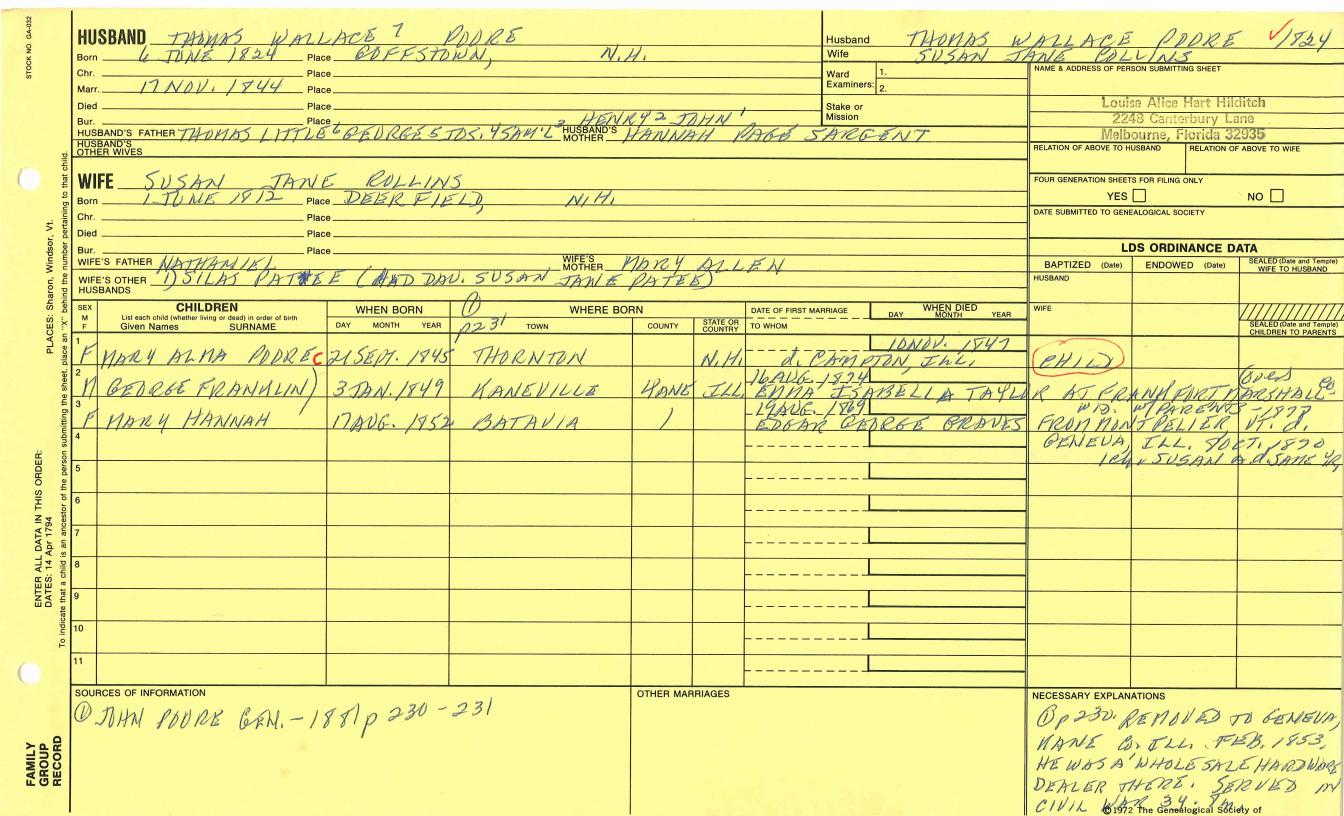 STOCK NO. GA-032
HUSBAND THOMAS WALLACE 7 POORE
Born 6 JUNE 1824 Place GOFFSTOWN, N.H.
Chr. Place
Marr. 17 NOV. 1844 Place
Died Place
Bur. Place
HENRY 2 JOHN 1
HUSBAND'S FATHER THOMAS LITTLE 6 GEORGE 5 JOS. 4 SAM'L 3 HUSBAND'S MOTHER HANNAH PAGE SARGENT
HUSBAND'S OTHER WIVES
WIFE SUSAN JANE ROLLINS
Born 1 JUNE 1812 Place DEERFIELD, N.H.
Chr. Place
Died Place
Bur. Place
WIFE'S FATHER NATHANIEL WIFE'S MOTHER MARY ALLEN
WIFE'S OTHER HUSBANDS 1) SILAS PATTEE (HAD DAU. SUSAN JANE PATEE)
Husband THOMAS WALLACE POORE 1824
Wife SUSAN JANE ROLLINS
Ward Examiners: 1.
2.
Stake or Mission
NAME & ADDRESS OF PERSON SUBMITTING SHEET
Louise Alice Hart Hilditch
2248 Canterbury Lane
Melbourne, Florida 32935
RELATION OF ABOVE TO HUSBAND RELATION OF ABOVE TO WIFE
FOUR GENERATION SHEETS FOR FILING ONLY
YES NO
DATE SUBMITTED TO GENEALOGICAL SOCIETY
LDS ORDINANCE DATA
BAPTIZED (Date) ENDOWED (Date) SEALED (Date and Temple) WIFE TO HUSBAND
HUSBAND
WIFE
SEALED (Date and Temple) CHILDREN TO PARENTS
SEX M F CHILDREN WHEN BORN WHERE BORN DATE OF FIRST MARRIAGE WHEN DIED
List each child (whether living or dead) in order of birth
Given Names SURNAME DAY MONTH YEAR TOWN COUNTY STATE OR COUNTRY TO WHOM DAY MONTH YEAR
① p231
10 NOV. 1847
1 F MARY ALMA POORE C 21 SEPT. 1845 THORNTON N.H. d. CAMPTON, ILL. CHILD
16 AUG. 1874
2 M GEORGE FRANKLIN) 3 JAN. 1849 KANEVILLE KANE ILL. EMMA ISABELLA TAYLOR AT FRANKFORT MARSHALL CO
19 AUG. 1869 W/PARENTS - 1878
3 F MARY HANNAH 17 AUG. 1852 BATAVIA EDGAR GEORGE GRAVES FROM MONTPELIER VT. d.
4 GENEVA, ILL. OCT. 1870
SUSAN d. SAME YR.
5
6
7
8
9
10
11
SOURCES OF INFORMATION
① JOHN POORE GEN. - 1881 p 230 - 231
OTHER MARRIAGES
NECESSARY EXPLANATIONS
① p 230. REMOVED TO GENEVA,
KANE CO. ILL. FEB. 1853,
HE WAS A WHOLESALE HARDWARE
DEALER THERE. SERVED IN
CIVIL WAR 3y.
©1972 The Genealogical Society of
PLACES: Sharon, Windsor, Vt.
ENTER ALL DATA IN THIS ORDER:
DATES: 14 Apr 1794
To indicate that a child is an ancestor of the person submitting the sheet, place an "X" behind the number pertaining to that child.
FAMILY GROUP RECORD